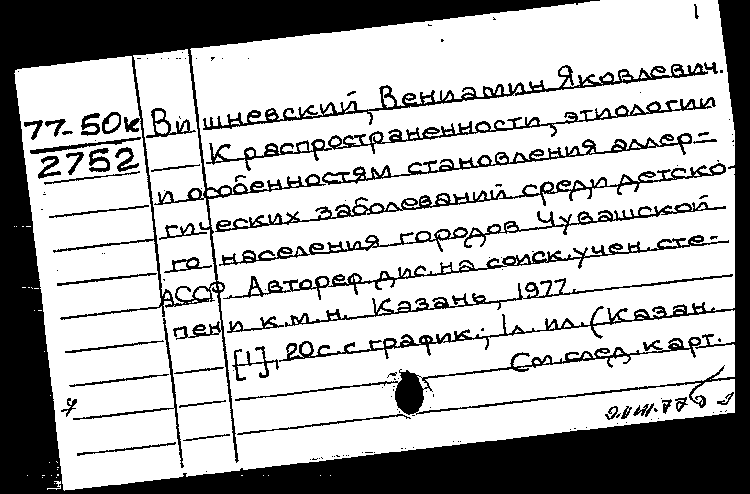 1
77-50к
2752
Вишневский, Вениамин Яковлевич.
К распространенности, этиологии
и особенностям становления аллер-
гических заболеваний среди детско-
го населения городов Чувашской
АССР. Автореф. дис. на соиск. учен. сте-
пени к.м.н. Казань, 1977.
[1], 20 с. с график.; 1 л. ил. (Казан.
См. след. карт.